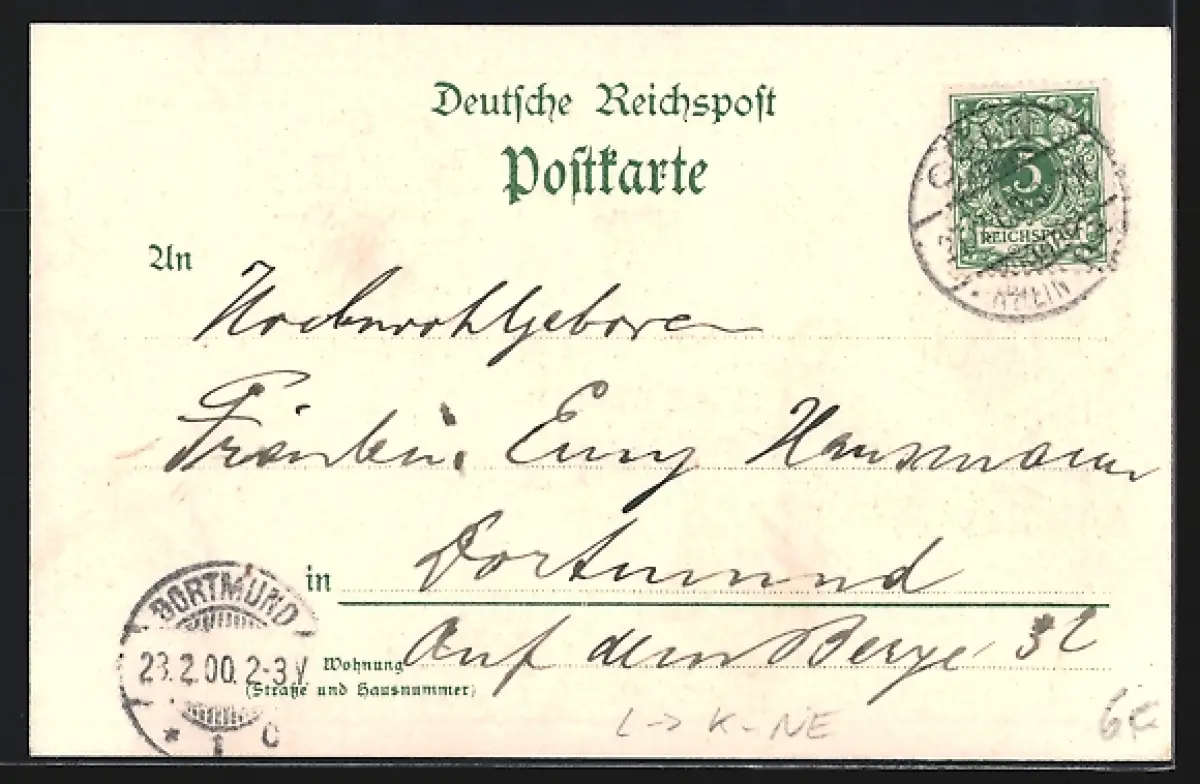 Deutsche Reichspost
Postkarte
5
REICHSPOST
RHEIN
An
Hochwohlgeboren
Fräulein Emmy Hausmann
in Dortmund
Wohnung Auf dem Berge 32
(Straße und Hausnummer)
DORTMUND
23.2.00.2-3V
* 1 c
L -> K-NE
6€